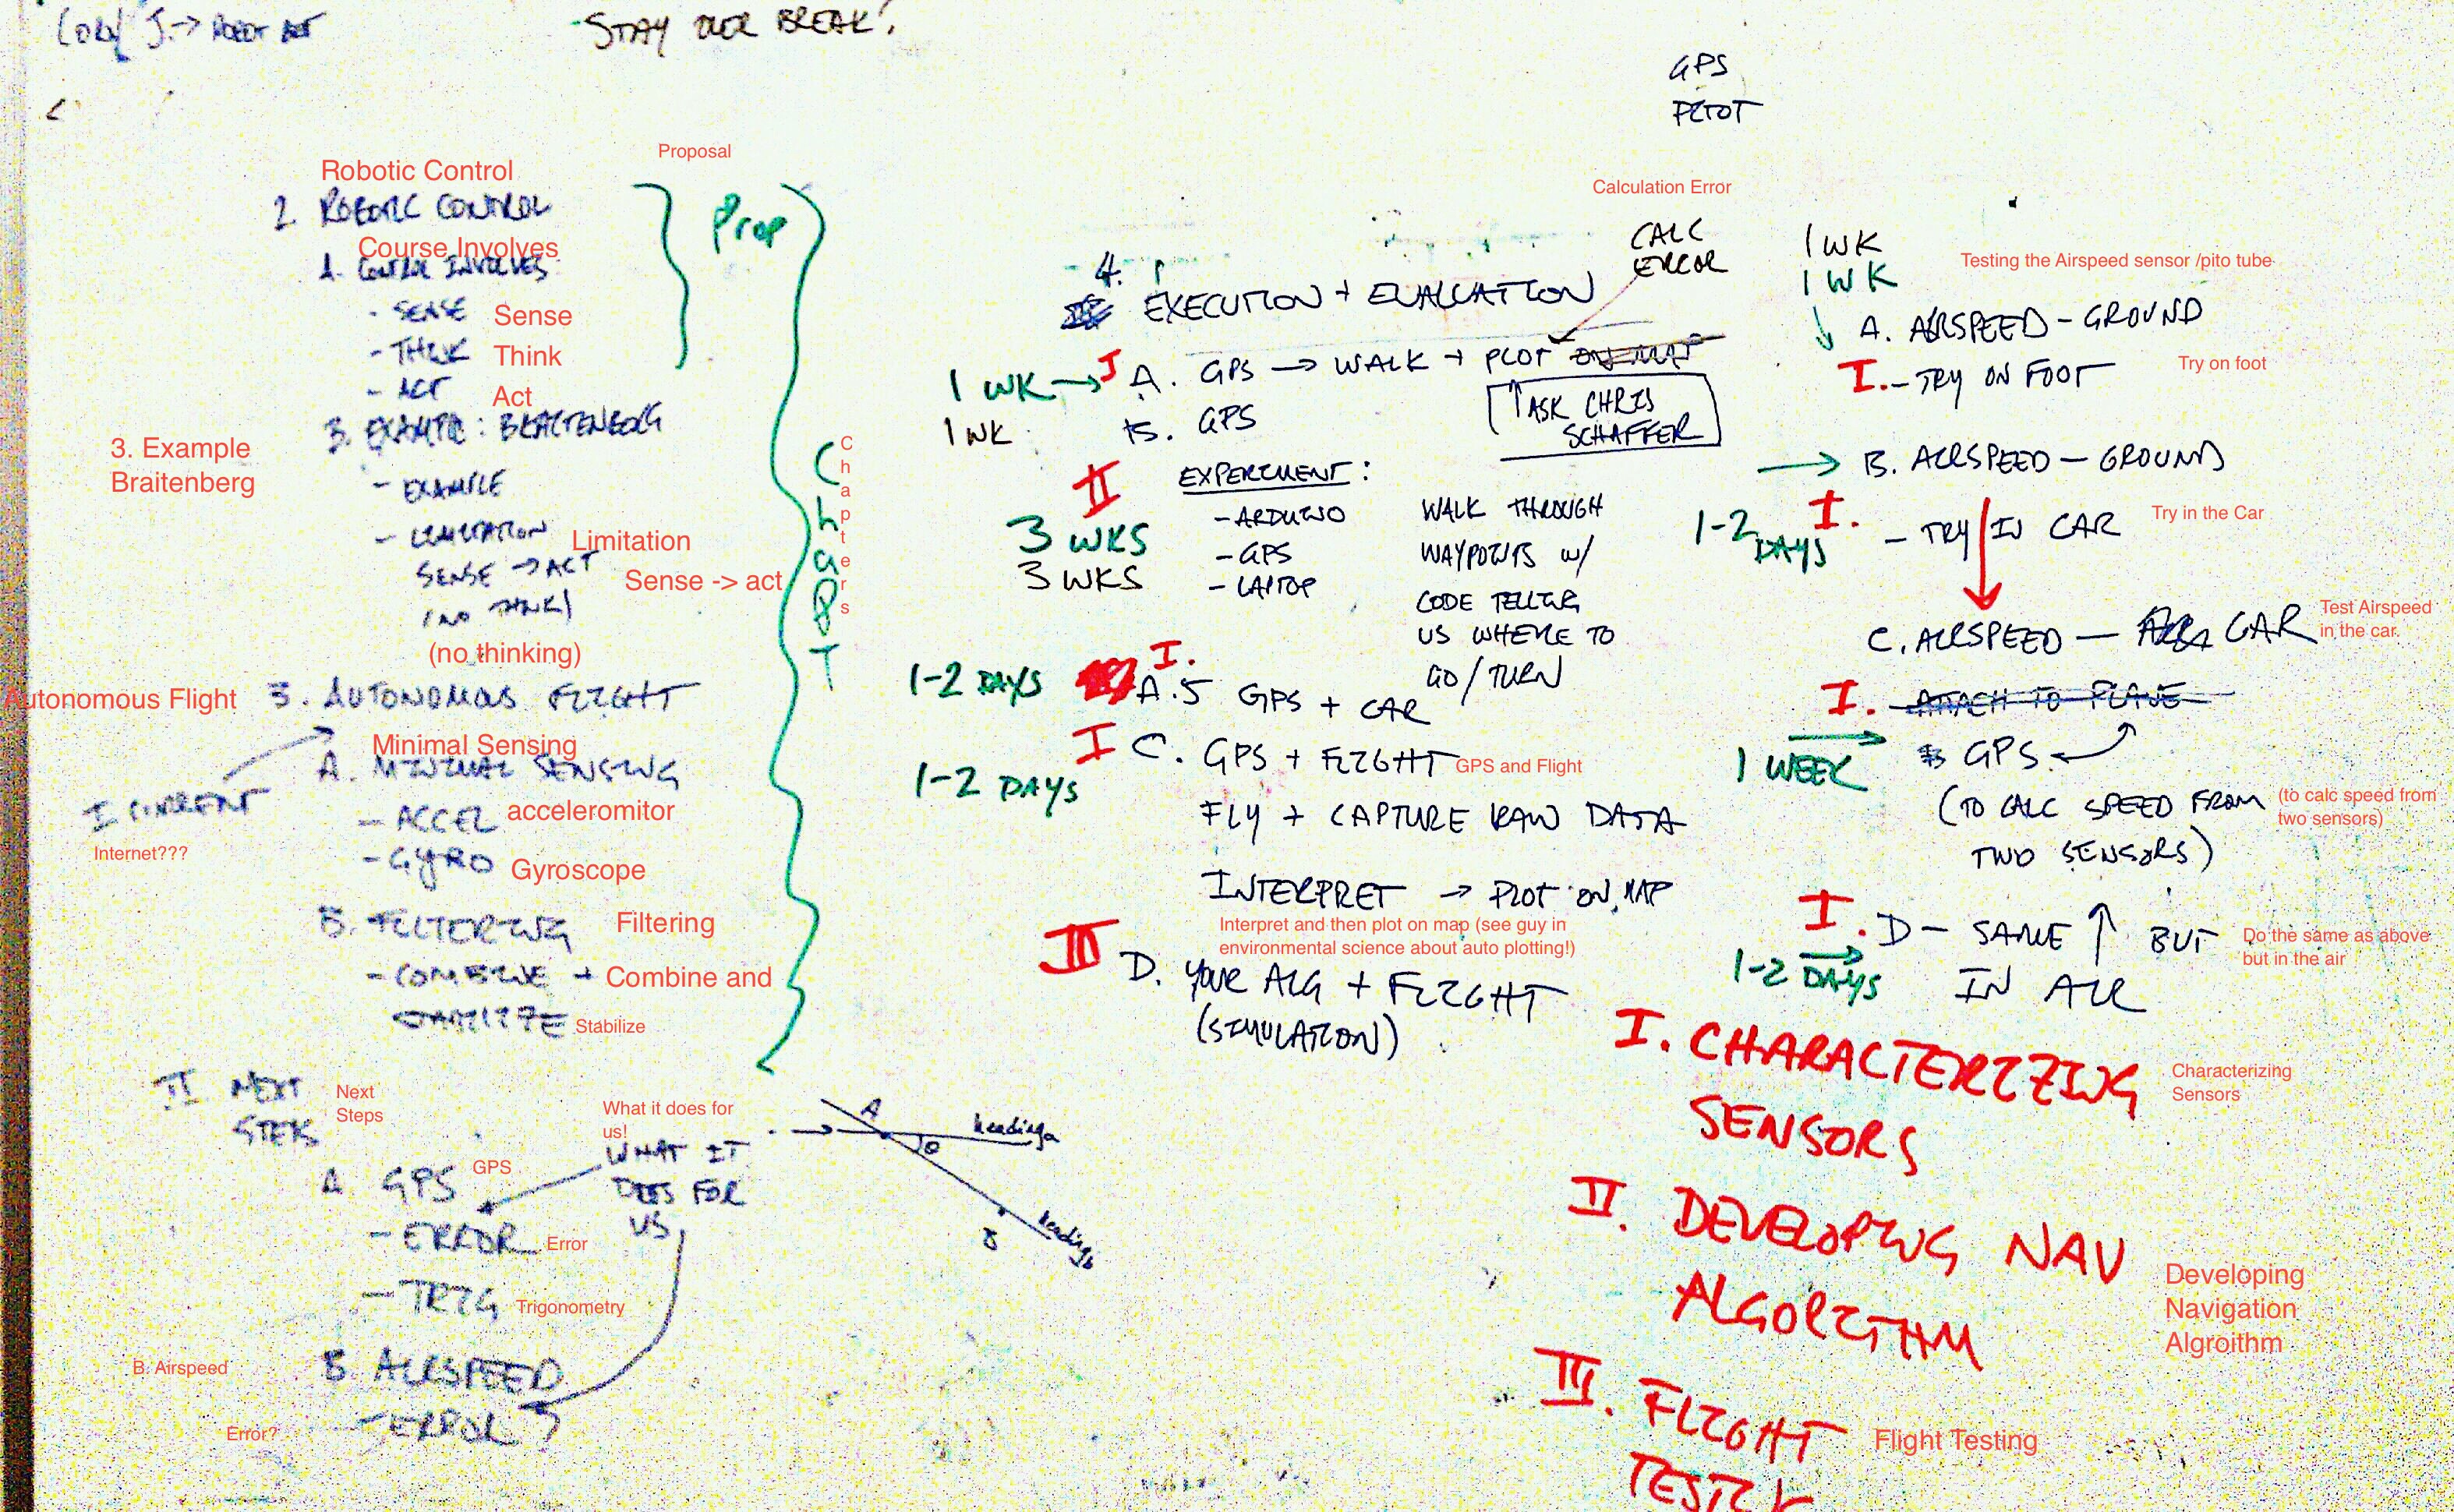 STAY OVER BREAK!
GPS
PITOT
Robotic Control
2. ROBOTIC CONTROL
Course Involves
A. CONTROL INVOLVES
- SENSE Sense
- THINK Think
- ACT Act
B. EXAMPLE: BRAITENBERG
3. Example
Braitenberg
- EXAMPLE
- LIMITATION Limitation
SENSE → ACT Sense -> act
(NO THINK)
(no thinking)
Autonomous Flight
3. AUTONOMOUS FLIGHT
Minimal Sensing
A. MINIMAL SENSING
I CURRENT
Internet???
- ACCEL acceleromitor
- GYRO Gyroscope
B. FILTERING Filtering
- COMBINE + Combine and
STABILIZE Stabilize
II NEXT
STEPS
Next
Steps
A. GPS GPS
- ERROR Error
- TRIG Trigonometry
B. Airspeed
B. AIRSPEED
Error?
- ERROR
What it does for
us!
WHAT IT
DOES FOR
US
A
heading a
θ
B
heading b
Proposal
Prop
ChapT
Chapters
4.
EXECUTION + EVALUATION
Calculation Error
CALC
ERROR
1 WK → I A. GPS → WALK + PLOT ON MAP
↑ ASK CHRIS
SCHAFFER
1 WK B. GPS
II
3 WKS
3 WKS
EXPERIMENT:
- ARDUINO
- GPS
- LAPTOP
WALK THROUGH
WAYPOINTS W/
CODE TELLING
US WHERE TO
GO / TURN
1-2 DAYS I. A.5 GPS + CAR
I C. GPS + FLIGHT GPS and Flight
1-2 DAYS
FLY + CAPTURE RAW DATA
INTERPRET → PLOT ON MAP
Interpret and then plot on map (see guy in
environmental science about auto plotting!)
III D. YOUR ALG + FLIGHT
(SIMULATION)
1 WK
1 WK
Testing the Airspeed sensor /pito tube
A. AIRSPEED - GROUND
I. - TRY ON FOOT Try on foot
→ B. AIRSPEED - GROUND
1-2 DAYS I. - TRY IN CAR Try in the Car
C. AIRSPEED - CAR
Test Airspeed
in the car.
I. - ATTACH TO PLANE
1 WEEK → GPS
(TO CALC SPEED FROM
TWO SENSORS)
(to calc speed from
two sensors)
I. D - SAME ↑ BUT
1-2 DAYS → IN AIR
Do the same as above
but in the air
I. CHARACTERIZING
SENSORS
Characterizing
Sensors
II. DEVELOPING NAV
ALGORITHM
Developing
Navigation
Algroithm
III. FLIGHT
Flight Testing